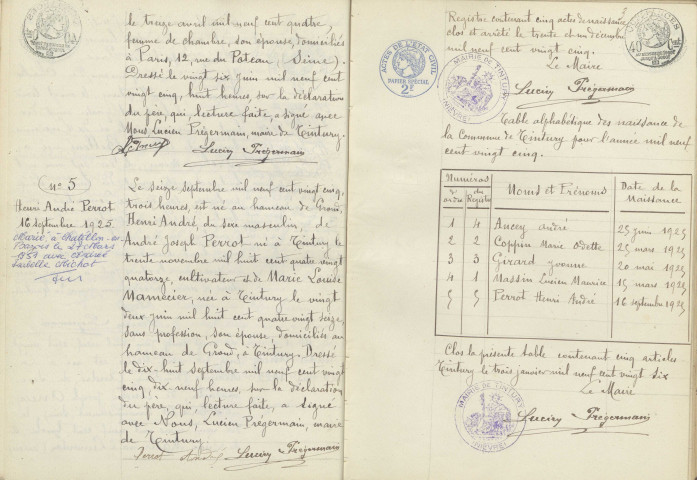 le treize avril mil neuf cent quatre,
femme de chambre, son épouse, domiciliés
à Paris, 12, rue du Poteau, (Seine).
Dressé le vingt six juin mil neuf cent
vingt cinq, huit heures, sur la déclaration
du père qui, lecture faite, a signé avec
Nous Lucien Prégermain, maire de Tintury.
Lucien Prégermain
N° 5
Henri André Perrot
16 septembre 1925
Marié à Châtillon-en-
Bazois le 21 Mars
1951 avec
Le seize septembre mil neuf cent vingt cinq,
trois heures, est né au hameau de
Henri André, du sexe masculin, de
André Joseph Perrot né à Tintury le
trente novembre mil huit cent quatre vingt
quatorze, cultivateur et de Marie Louise
née à Tintury le vingt
deux juin mil huit cent quatre vingt seize,
sans profession, son épouse, domiciliés au
hameau de à Tintury. Dressé
le dix-huit septembre mil neuf cent vingt
cinq dix neuf heures, sur la déclaration
du père, qui, lecture faite, a signé
avec Nous, Lucien Prégermain, maire
de Tintury.
Perrot André Lucien Prégermain
ACTES DE L'ETAT CIVIL
PAPIER SPECIAL
2F
MAIRIE DE TINTURY
(NIEVRE)
40
Registre contenant cinq actes de naissance
clos et arrêté le trente et un décembre
mil neuf cent vingt cinq.
Le Maire
Lucien Prégermain
Table alphabétique des naissance de
la Commune de Tintury pour l'année mil neuf
cent vingt cinq.
Numéros Noms et Prénoms Date de la Naissance
d'ordre du Registre
1 4 Ancey André 25 juin 1925
2 2 Coppin Marie Odette 25 mars 1925
3 3 Girard Yvonne 20 mai 1925
4 1 Massin Lucien Maurice 15 mars 1925
5 5 Perrot Henri André 16 septembre 1925
Clos la présente table contenant cinq articles.
Tintury le trois janvier mil neuf cent vingt six
Le Maire
MAIRIE DE TINTURY
(NIEVRE)
Lucien Prégermain